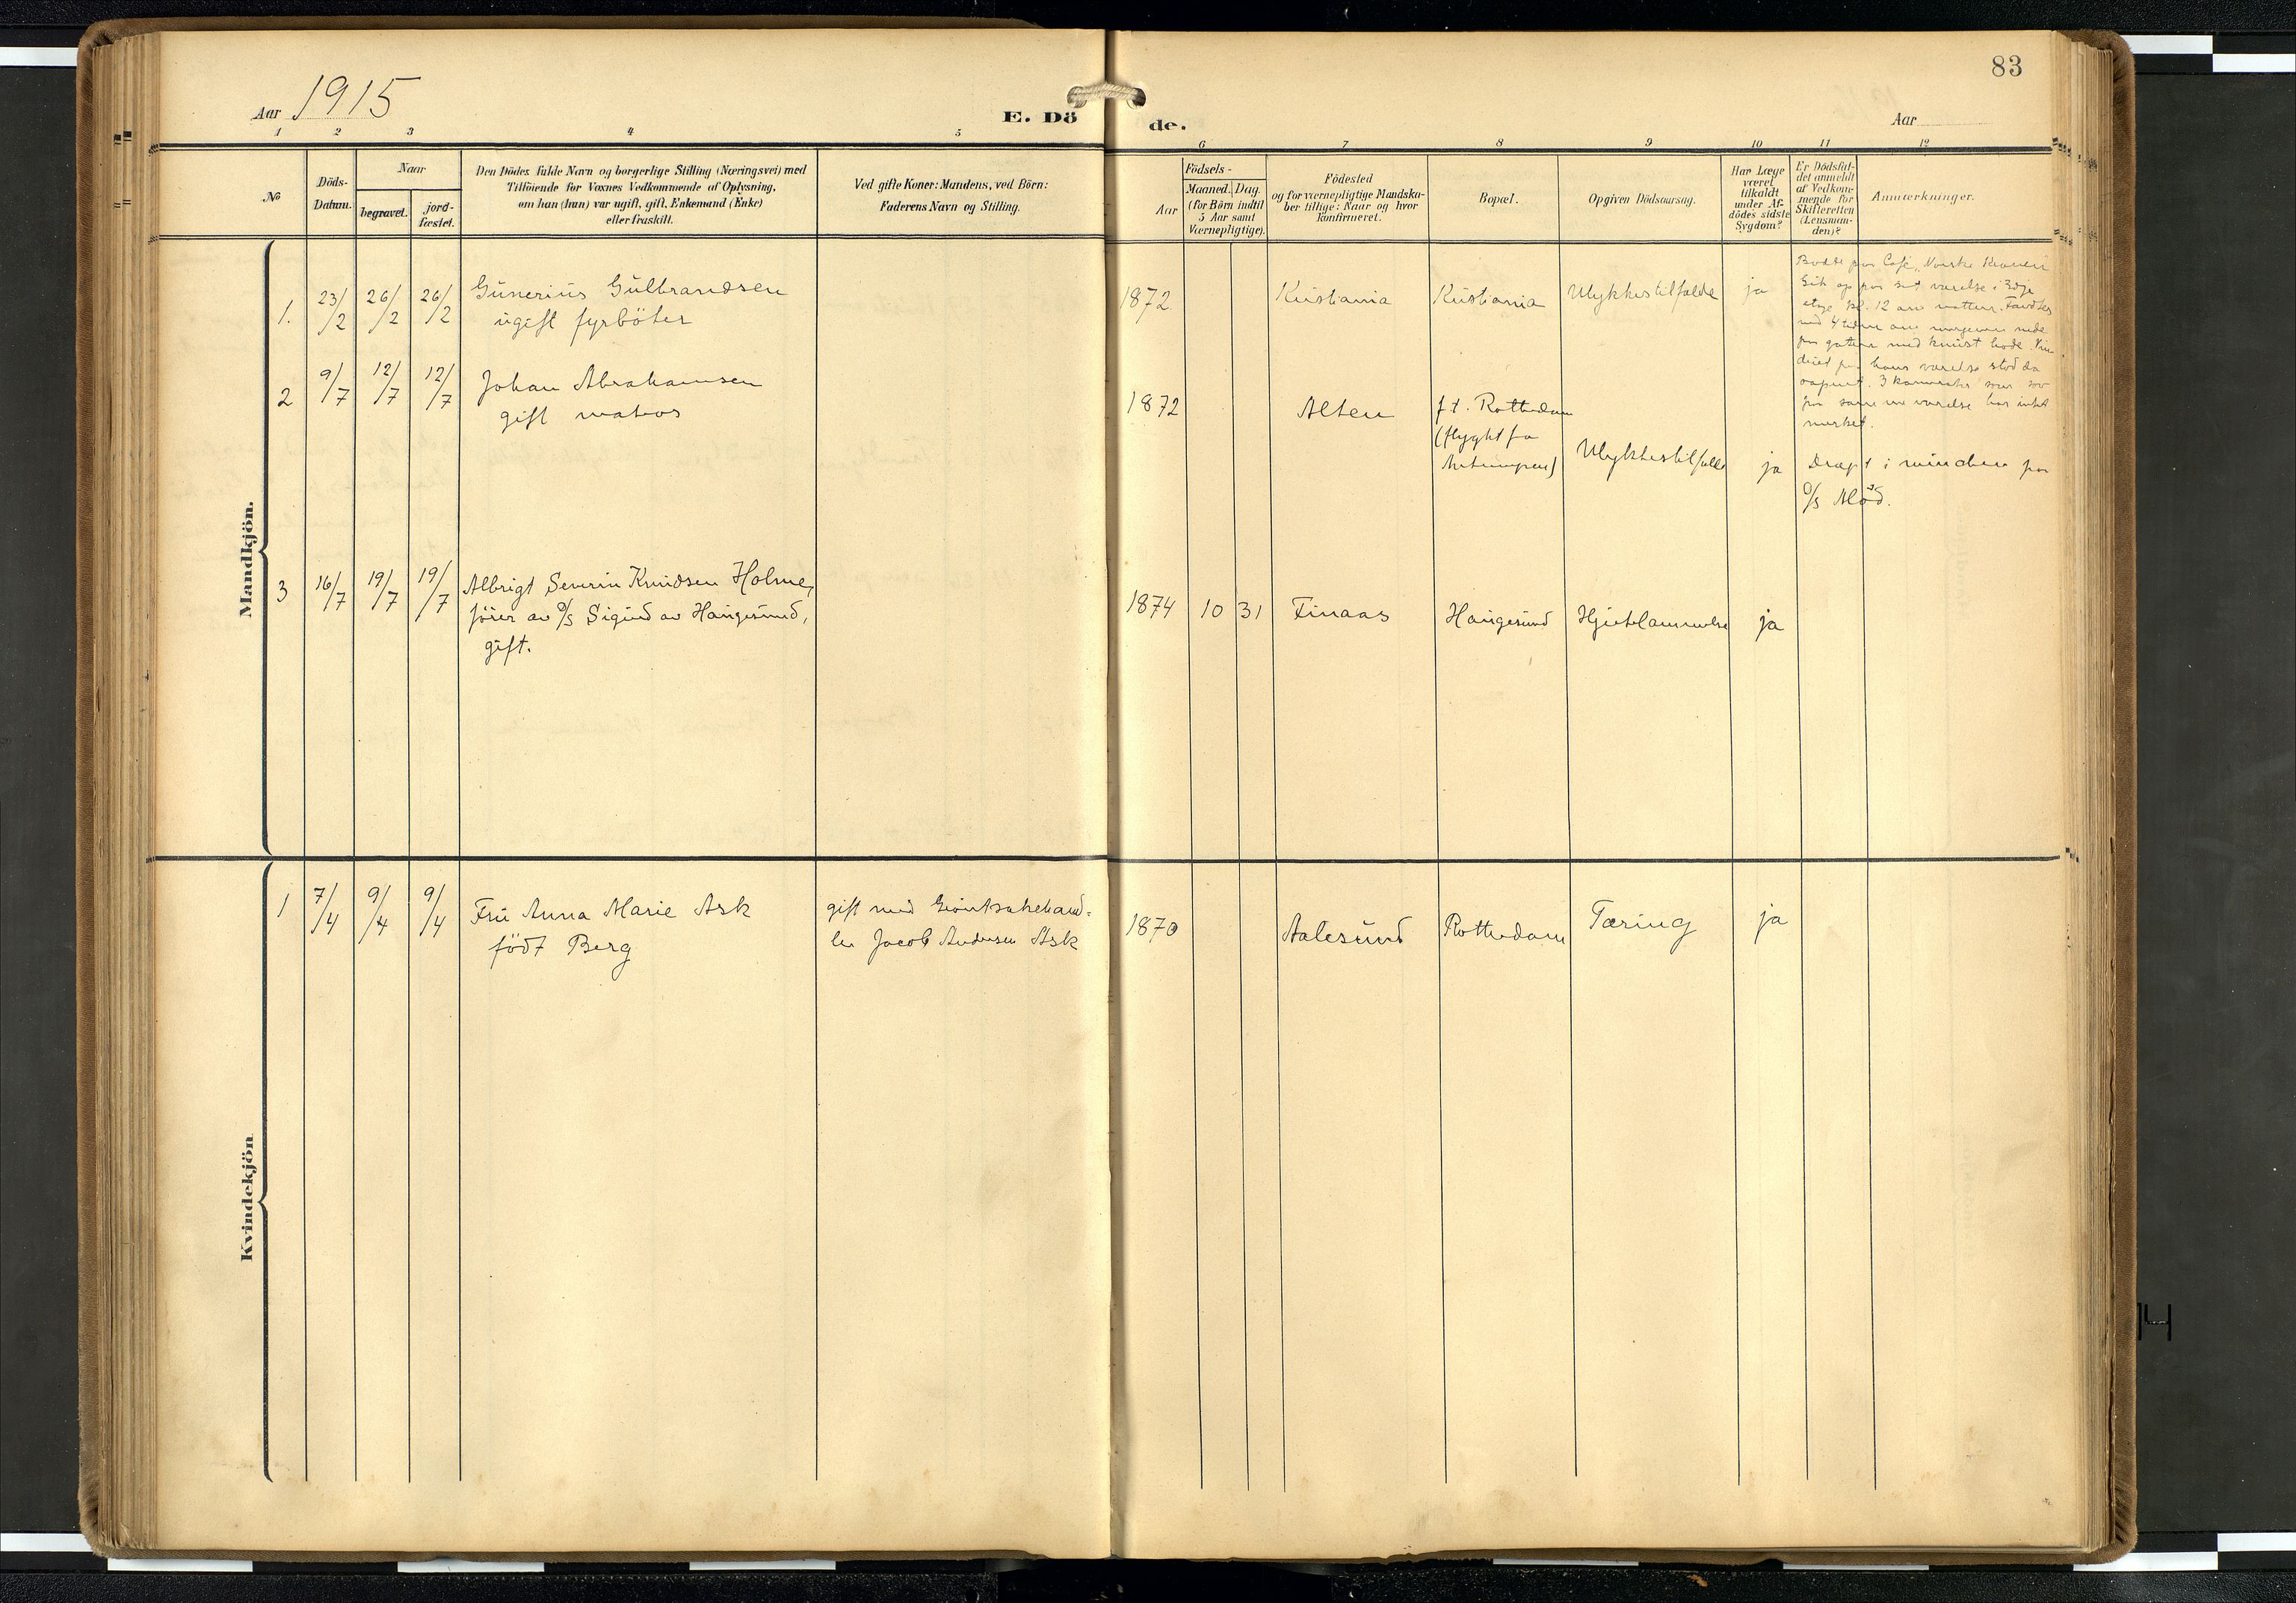 Aar 1915
E. Dö
de.
Aar
83
1 2 3 4 5 6 7 8 9 10 11 12
No
Döds-
Datum.
Naar
begravet.
jord-
fæstet.
Den Dödes fulde Navn og borgerlige Stilling (Næringsvei) med
Tilföiende for Voxnes Vedkommende af Oplysning,
om han (hun) var ugift, gift, Enkemand (Enke)
eller fraskilt.
Ved gifte Koner: Mandens, ved Börn:
Faderens Navn og Stilling.
Födsels-
Aar
Maaned. Dag.
(for Börn indtil
5 Aar samt
Værnepligtige).
Födested
og for værnepligtige Mandska-
ber tillige: Naar og hvor
konfirmeret.
Bopæl.
Opgiven Dödsaarsag.
Har Læge
været
tilkaldt
under Af-
dödes sidste
Sygdom?
Er Dödsfal-
det anmeldt
af Vedkom-
mende for
Skifteretten
(Lensman-
den)?
Anmærkninger.
Mandkjön.
1. 23/2 26/2 26/2 Gunerius Gulbrandsen
ugift fyrböter
1872 Kristiania Kristiania Ulykkestilfælde ja
Bodde paa Café, Norske Kronen
Gik op paa sit værelse i 3dje
etage kl. 12 om natten. Fandtes
ved 4 tiden om morgenen nede
paa gaten med knust hode. Vin
duet paa hans værelse stod da
aapent. 3 kamerater som sov
paa samme værelse har intet
merket.
2 9/7 12/7 12/7 Johan Abrahamsen
gift matros
1872 Alten f.t. Rotterdam
(flygtet fra
Antwerpen)
Ulykkestilfælde ja Dræpt i minchen paa
D/S Alöd.
3 16/7 19/7 19/7 Albrigt Severin Knudsen Holme,
förer av D/S Sigurd av Haugesund,
gift.
1874 10 31 Finaas Haugesund Hjertelammelse ja
Kvindekjön
1 7/4 9/4 9/4 Fru Anna Marie Ask
födt Berg
gift med Grönsakehand-
ler Jacob Andersen Ask
1870 Aalesund Rotterdam Tæring ja